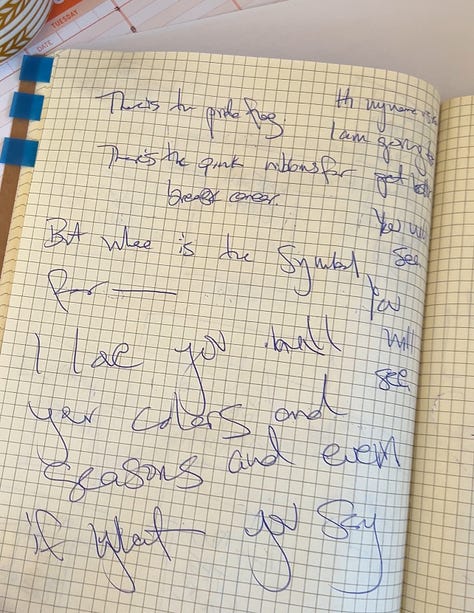 TUESDAY
DATE
There's the pride flag.
There's the pink ribbons for
breast cancer.
But where is the symbol
For
I love you in all
your colors and
seasons and even
if what you say
Hi my name is
I am going to
get
You will
see
You
will
see